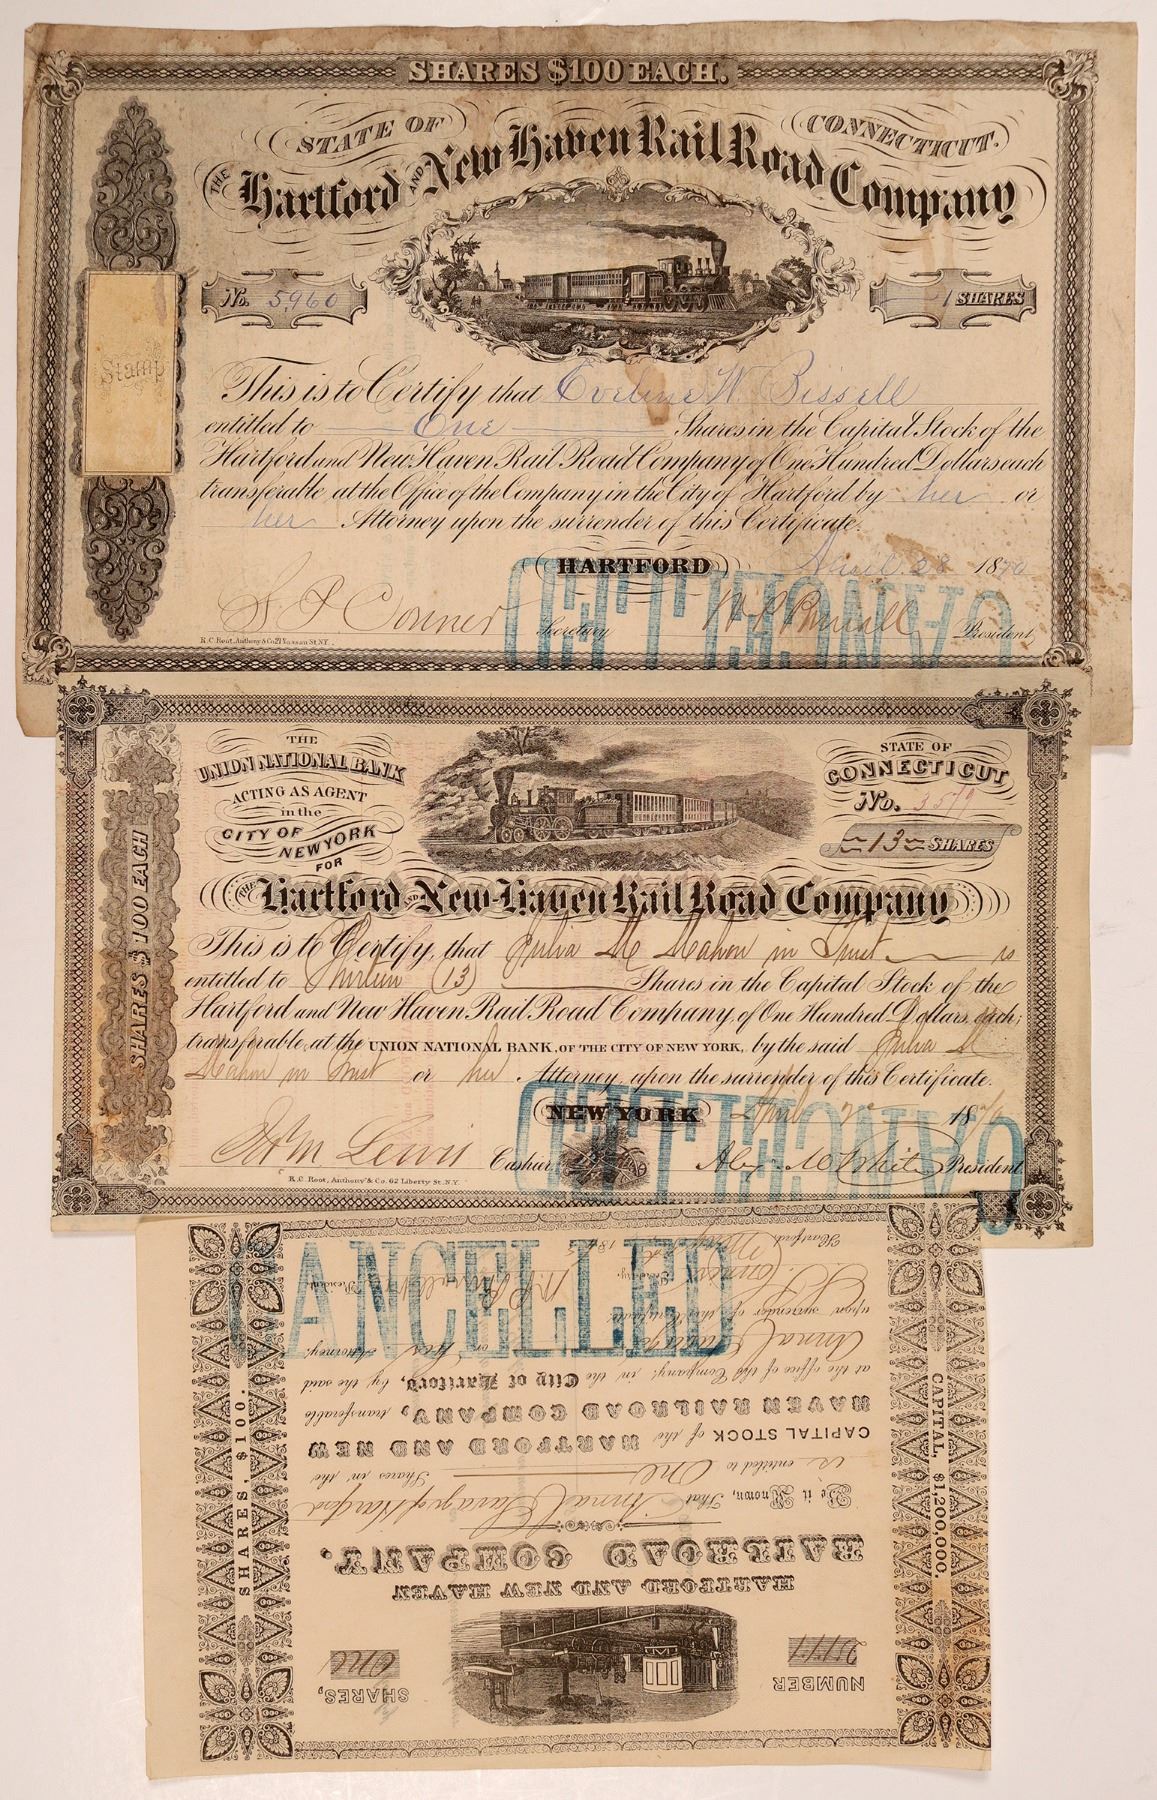 SHARES $100 EACH.
STATE OF CONNECTICUT.
THE Hartford AND New Haven Rail Road Company
No. 5960 1 SHARES
Stamp
This is to Certify that Eveline W. Bissell
entitled to One Shares in the Capital Stock of the
Hartford and New Haven Rail Road Company of One Hundred Dollars each
transferable at the Office of the Company in the City of Hartford by her or
her Attorney upon the surrender of this Certificate.
HARTFORD April 28 1870
CANCELLED
Secretary President
R.C. Root, Anthony & Co. 21 Nassau St. N.Y.
THE
UNION NATIONAL BANK
ACTING AS AGENT
in the
CITY OF
NEW YORK
FOR
STATE OF
CONNECTICUT
No.
13 SHARES
SHARES $100 EACH
THE Hartford AND New-Haven Rail Road Company
This is to Certify, that Julia Mc Mahon in Trust is
entitled to Thirteen (13) Shares in the Capital Stock of the
Hartford and New Haven Rail Road Company, of One Hundred Dollars, each;
transferable, at the UNION NATIONAL BANK, OF THE CITY OF NEW YORK, by the said Julia Mc
Mahon in Trust or her Attorney, upon the surrender of this Certificate.
NEW YORK April 18
CANCELLED
Lewis Cashier President
R.C. Root, Anthony & Co. 62 Liberty St. N.Y.
NUMBER SHARES,
One
HARTFORD AND NEW HAVEN
RAILROAD COMPANY.
Be it Known, That Anna Savage of Hartford
is entitled to One Shares in the
CAPITAL STOCK of the HARTFORD AND NEW
HAVEN RAILROAD COMPANY, transferable
at the office of the Company, in the City of Hartford, by the said
Anna Savage or her Attorney;
upon surrender of this Certificate
Secretary. President
Hartford 1845
SHARES, $100.
CAPITAL, $1,200,000.
CANCELLED